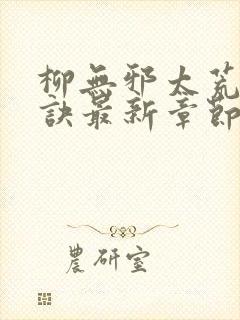 柳無邪太荒
訣最新章節
農研室